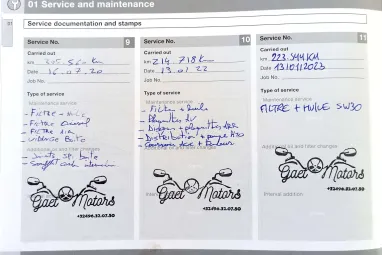 01 Service and maintenance
01
Service documentation and stamps
Service No. 9
Carried out
km 205.560 km
Date 16.07.20
Job No.
Type of service
Maintenance service
- Filtre + huile
- Filtre
- Filtre Air
- vidange Boite
Additional oil and filter changes
- boite
Interval addition
Gaet Motors
+32496.32.07.50
Service No. 10
Carried out
km 214.718 km
Date 13.01.22
Job No.
Type of service
Maintenance service
- Filtre + huile
- Plaquettes AV
- Disques + plaquettes
- Distribution + pompe H2O
- Courroie
Additional oil and filter changes
Interval addition
Gaet Motors
+32496.32.07.50
Service No. 11
Carried out
km 223.544 KM
Date 13/01/2023
Job No.
Type of service
Maintenance service
FILTRE + HUILE 5W30
Additional oil and filter changes
Interval addition
Gaet Motors
+32496.32.07.50